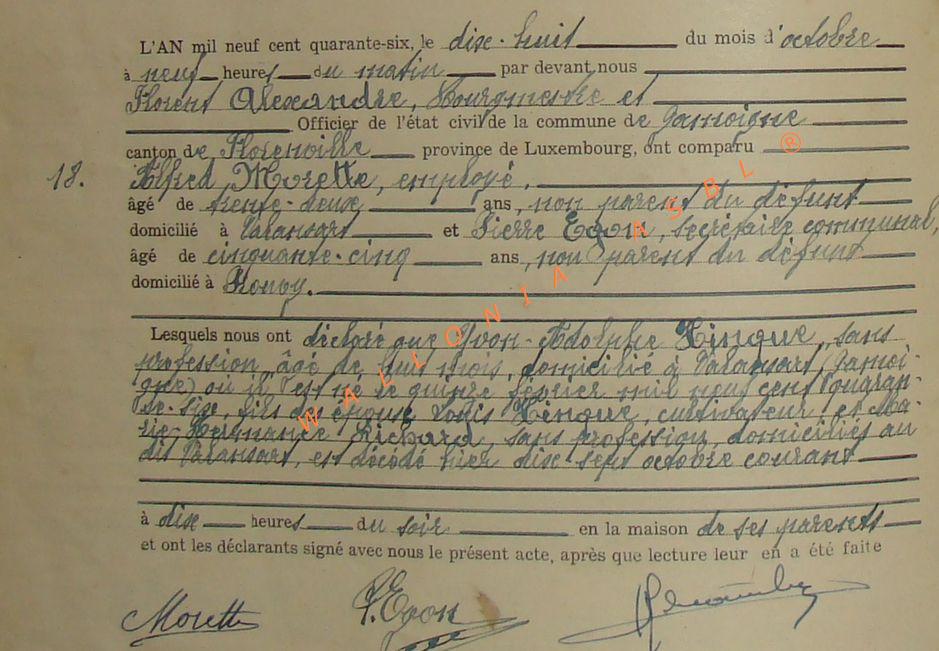 L'AN mil neuf cent quarante-six, le dix-huit du mois d'octobre
à neuf heures du matin par devant nous
Florent Alexandre, Bourgmestre et
Officier de l'état civil de la commune de Jamoigne
canton de Florenville province de Luxembourg, ont comparu
18. Alfred Morette, employé,
âgé de trente-deux ans, non parent du défunt
domicilié à Valansart et Pierre Egon, secrétaire communal,
âgé de cinquante-cinq ans, non parent du défunt
domicilié à
Lesquels nous ont déclaré que Yvon-Adolphe Hingue, sans
profession, âgé de huit mois, domicilié à Valansart (Jamoi-
gne) où il est né le quinze février mil neuf cent quaran-
te-six, fils de époux Louis Hingue, cultivateur et Ma-
rie-Hermance Richard, sans profession, domiciliés au
dit Valansart, est décédé hier dix-sept octobre courant
à dix heures du soir en la maison de ses parents
et ont les déclarants signé avec nous le présent acte, après que lecture leur en a été faite
Morette P. Egon
WALLONIA ASBL ®